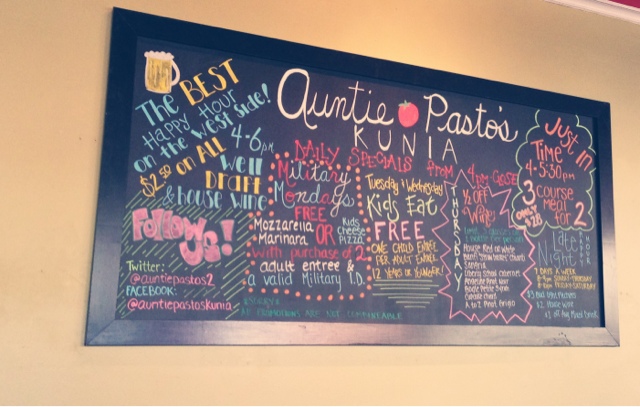 Auntie Pasto's
KUNIA
The BEST
Happy Hour
on the west side!
4-6pm
$2.50 on ALL
well
DRAFT
& house wine
Follow us!
Twitter:
@auntiepastos2
FACEBOOK:
@auntiepastoskunia
DAILY SPECIALS FROM 4pm-CLOSE
Military
Mondays
FREE
Mozzarella
Marinara
OR
Kids
Cheese
Pizza
with purchase of 2
adult entree &
a valid Military I.D.
ALL PROMOTIONS ARE NOT COMBINABLE
Tuesday & Wednesday
Kids Eat
FREE
ONE CHILD ENTREE
PER ADULT ENTREE
12 YEARS OR YOUNGER!
THURSDAY
1/2 OFF
Wine
House Red or White
A to Z Pinot Grigio
Just in!
Time
4-5:30pm
3 course
meal
for 2
ONLY
$28
Late
Night
HOUR
7 DAYS A WEEK
SUNDAY-THURSDAY
FRIDAY-SATURDAY
$2 House Wine